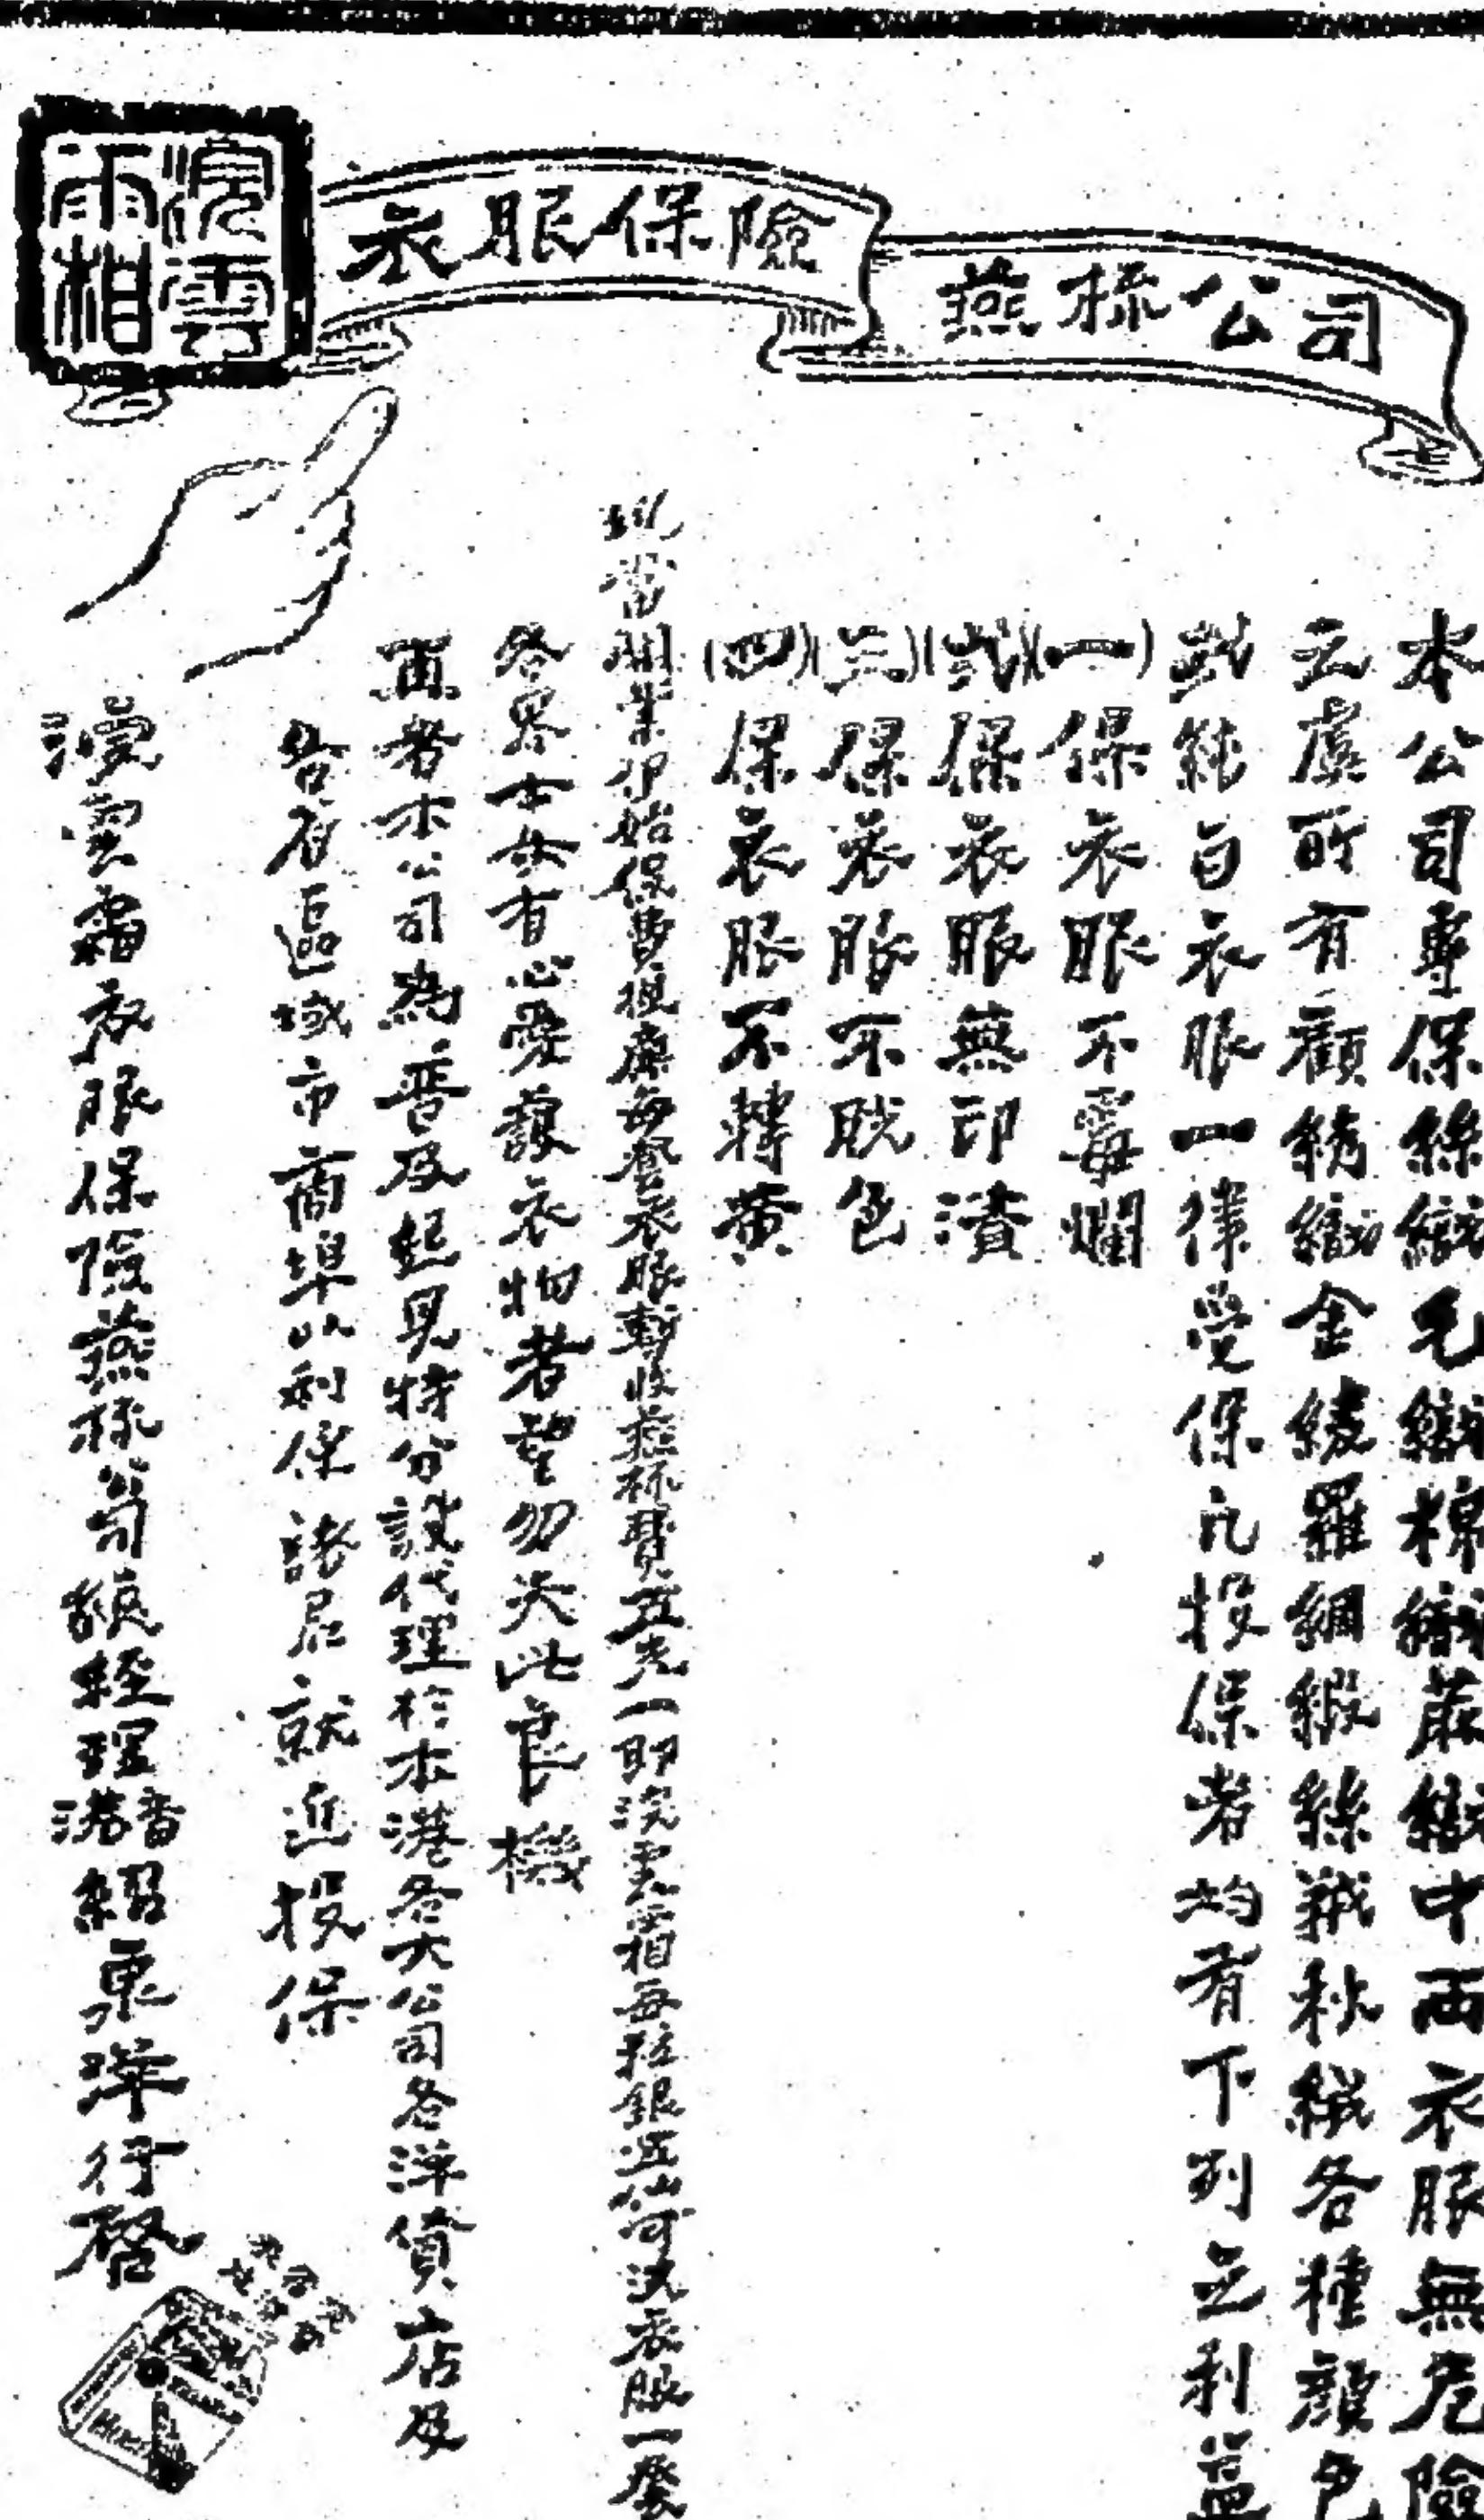 浣雲霜
衣服保險
燕梳公司
本公司專保絲織毛織棉織蔴織中西衣服無危險
之虞所有顧绣織金綾羅綢緞絲羢秋絨各種顏色
或純白衣服一律受保凡投保者均有下列之利益
(一)保衣服不霉爛
(弍)保衣服無印漬
(三)保衣服不脱色
(四)保衣服不轉黄
現當開業伊始保費極廉每套衣服暫收燕梳費五先一即浣雲霜每粒銀五仙可洗衣服一套
各界士女有心愛護衣物者望勿失此良機
再者本公司為普及起見特分設代理於本港各大公司各洋貨店及
各省區域市商埠以利保諸君就近投保
浣雲霜衣服保險燕梳公司總經理香港紹東洋行啓